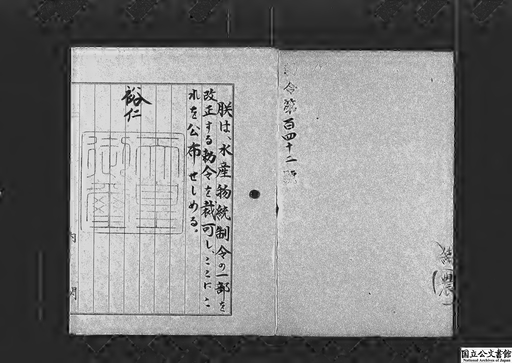 令第百四十二号
朕は、水産物統制令の一部を
改正する勅令を裁可し、ここにこ
れを公布せしめる。
裕仁
天皇
御璽
内閣
農
国立公文書館
National Archives of Japan